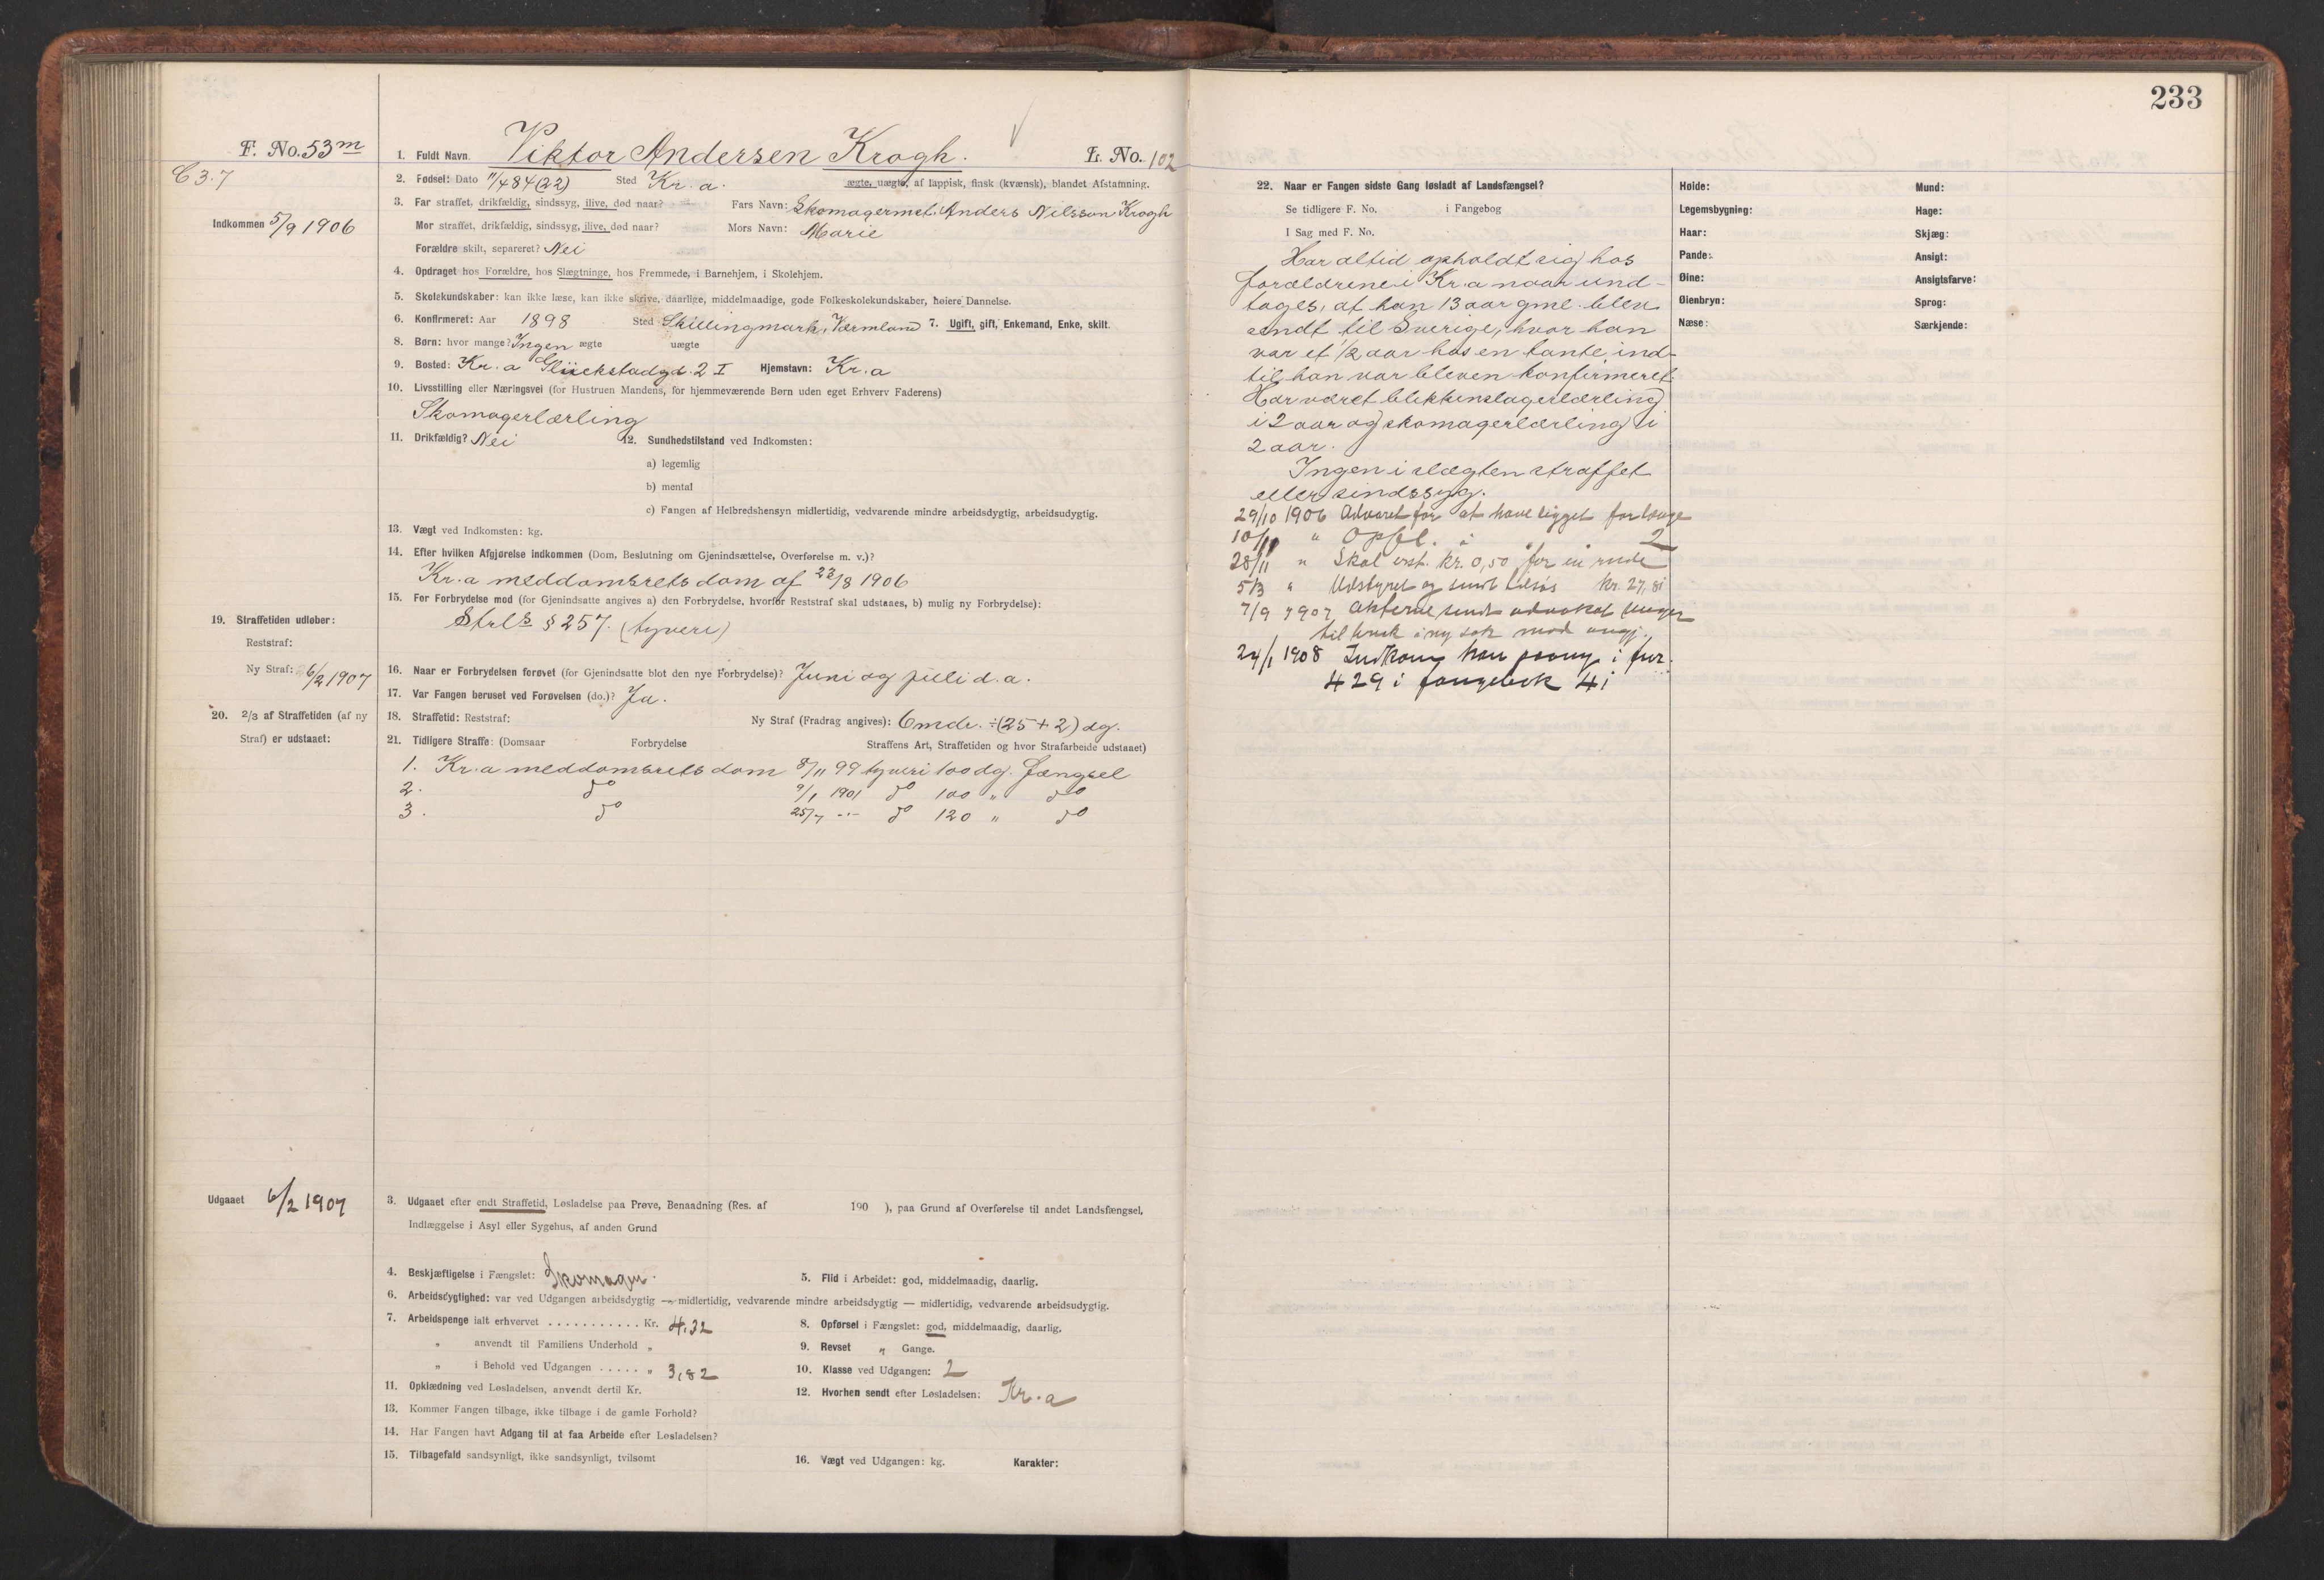 233
F. No. 53 m
C 3.7
1. Fuldt Navn. Viktor Andersen Krogh. L. No. 102
2. Fødsel: Dato 11/4 84 (22) Sted Kr.a. ægte, uægte, af lappisk, finsk (kvænsk), blandet Afstamning.
Indkommen 5/9 1906
3. Far straffet, drikfældig, sindssyg, ilive, død naar? Fars Navn: Skomagermst. Anders Nilsson Krogh
Mor straffet, drikfældig, sindssyg, ilive, død naar? Mors Navn: Marie
Forældre skilt, separeret? Nei
4. Opdraget hos Forældre, hos Slægtninge, hos Fremmede, i Barnehjem, i Skolehjem.
5. Skolekundskaber: kan ikke læse, kan ikke skrive, daarlige, middelmaadige, gode Folkeskolekundskaber, høiere Dannelse.
6. Konfirmeret: Aar 1898 Sted Skillingmark, Værmland 7. Ugift, gift, Enkemand, Enke, skilt.
8. Børn: hvor mange? Ingen ægte uægte
9. Bosted: Kr.a Glückstadgd. 2 I Hjemstavn: Kr.a
10. Livsstilling eller Næringsvei (for Hustruen Mandens, for hjemmeværende Børn uden eget Erhverv Faderens)
Skomagerlærling
11. Drikfældig? Nei 12. Sundhedstilstand ved Indkomsten:
a) legemlig
b) mental
c) Fangen af Helbredshensyn midlertidig, vedvarende mindre arbeidsdygtig, arbeidsudygtig.
13. Vægt ved Indkomsten: kg.
14. Efter hvilken Afgjørelse indkommen (Dom, Beslutning om Gjenindsættelse, Overførelse m. v.)?
Kr.a meddomsrets dom af 23/8 1906
15. For Forbrydelse mod (for Gjenindsatte angives a) den Forbrydelse, hvorfor Reststraf skal udstaaes, b) mulig ny Forbrydelse):
Strls § 257. (tyveri)
19. Straffetiden udløber:
Reststraf:
Ny Straf: 6/2 1907
16. Naar er Forbrydelsen forøvet (for Gjenindsatte blot den nye Forbrydelse)? Juni og juli d. a.
17. Var Fangen beruset ved Forøvelsen (do.)? Ja.
20. 2/3 af Straffetiden (af ny
Straf) er udstaaet:
18. Straffetid: Reststraf: Ny Straf (Fradrag angives): 6 mdr. ÷ (25 + 2) dg.
21. Tidligere Straffe: (Domsaar Forbrydelse Straffens Art, Straffetiden og hvor Strafarbeide udstaaet)
1. Kr.a meddomsrets dom 8/11 99 tyveri 100 dg. fængsel
2. do 9/1 1901 do 100 " do
3. do 25/7 -"- do 120 " do
Udgaaet 6/2 1907
3. Udgaaet efter endt Straffetid, Løsladelse paa Prøve, Benaadning (Res. af 190 ), paa Grund af Overførelse til andet Landsfængsel,
Indlæggelse i Asyl eller Sygehus, af anden Grund
4. Beskjæftigelse i Fængslet: Skomager.
5. Flid i Arbeidet: god, middelmaadig, daarlig.
6. Arbeidsdygtighed: var ved Udgangen arbeidsdygtig — midlertidig, vedvarende mindre arbeidsdygtig — midlertidig, vedvarende arbeidsudygtig.
7. Arbeidspenge ialt erhvervet . . . . . . . . . . . Kr. 4,32
8. Opførsel i Fængslet: god, middelmaadig, daarlig.
" anvendt til Familiens Underhold "
9. Revset " Gange.
" i Behold ved Udgangen . . . . . " 3,82
10. Klasse ved Udgangen: 2
11. Opklædning ved Løsladelsen, anvendt dertil Kr.
12. Hvorhen sendt efter Løsladelsen: Kr.a
13. Kommer Fangen tilbage, ikke tilbage i de gamle Forhold?
14. Har Fangen havt Adgang til at faa Arbeide efter Løsladelsen?
15. Tilbagefald sandsynligt, ikke sandsynligt, tvilsomt
16. Vægt ved Udgangen: kg. Karakter:
22. Naar er Fangen sidste Gang løsladt af Landsfængsel?
Se tidligere F. No. i Fangebog
I Sag med F. No.
Har altid opholdt sig hos
forældrene i Kr.a naar und-
tages, at han 13 aar gml. blev
sendt til Sverige, hvor han
var et 1/2 aar hos en tante, ind-
til han var bleven konfirmeret.
Har været blikkenslagerlærling
i 2 aar og skomagerlærling i
2 aar.
Ingen i slægten straffet
eller sindssyg.
29/10 1906 Advaret for at have ligget for længe
10/11 " Opfl. i 2
28/11 " Skal erst. kr. 0,50 for en rude
5/3 " Udstyret og sendt kr. 27,81
7/9 1907 Akterne sendt advokat
til bruk i ny sak mod angj.
24/1 1908 Indkom han paany i fnr.
429 i fangebok 4i
Høide:
Legemsbygning:
Haar:
Pande:
Øine:
Øienbryn:
Næse:
Mund:
Hage:
Skjæg:
Ansigt:
Ansigtsfarve:
Sprog:
Særkjende: